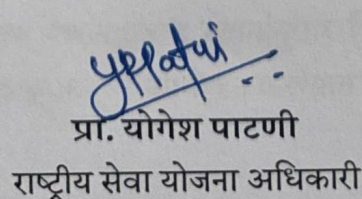 प्रा. योगेश पाटणी
राष्ट्रीय सेवा योजना अधिकारी